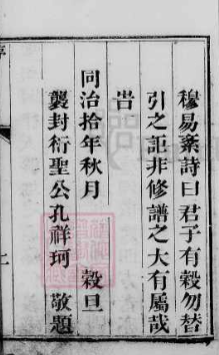 穆易椉詩曰君子有穀勿替
引之詎非修譜之大有屬哉
旹
同治拾年秋月　穀旦
襲封衍聖公孔祥珂　敬題